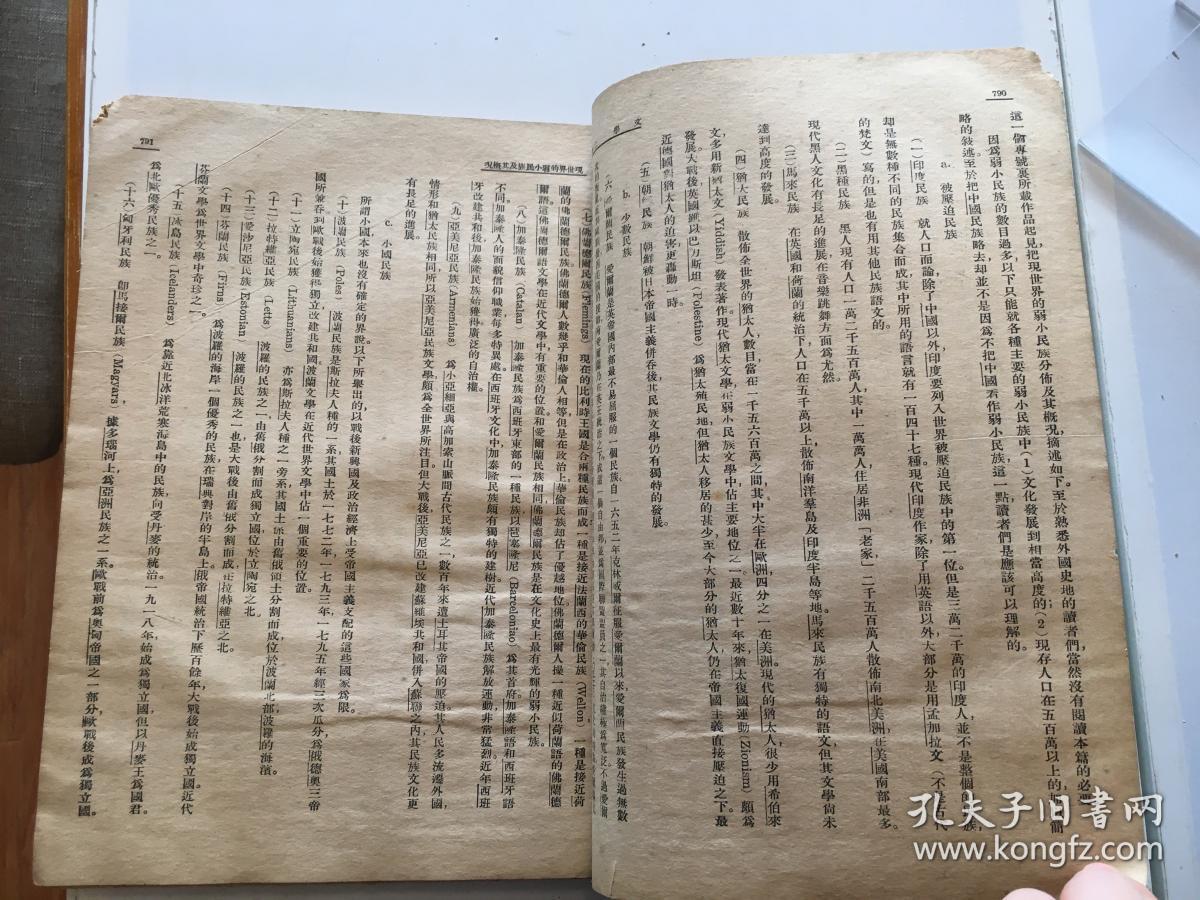 790
這一個專號裏所載作品起見把現世界的弱小民族分佈及其概況摘述如下。至於熟悉外國史地的讀者們,當然沒有閱讀本篇的必要。
因爲弱小民族的數目過多以下只能就各種主要的弱小民族中(1)文化發展到相當高度的;(2)現存人口在五百萬以上的,加簡
略的敍述。至於把中國民族略去却並不是因爲不把中國看作弱小民族,這一點讀者們是應該可以理解的。
a. 被壓迫民族
(一)印度民族 就人口而論,除了中國以外印度要列入世界被壓迫民族中的第一位。但是三萬二千萬的印度人,並不是整個的民族,
却是無數種不同的民族集合而成,其中所用的語言就有一百四十七種。現代印度作家除了用英語以外,大部分是用孟加拉文(不是古代
的梵文)寫的,但是也有用其他民族語文的。
(二)黑種民族 黑人現有人口一萬二千五百萬人,其中一萬萬人住居非洲「老家」,二千五百萬人散佈南北美洲,在美國南部最多。
現代黑人文化有長足的進展,在音樂跳舞方面爲尤然。
(三)馬來民族 在英國和荷蘭的統治下,人口在五千萬以上,散佈南洋羣島及印度半島等地。馬來民族有獨特的語文,但其文學尙未
達到高度的發展。
(四)猶太民族 散佈全世界的猶太人,數目當在一千五六百萬之間,其中大半在歐洲,四分之一在美洲。現代的猶太人,很少用希伯來
文,多用新猶太文(Yiddish)發表著作。現代猶太文學,在弱小民族文學中佔主要地位之一。最近數十年來猶太復國運動(Zionism)頗爲
發展。大戰後英國雖以巴力斯坦(Polestine)爲猶太殖民地,但猶太人移居的甚少,至今大部分的猶太人,仍在帝國主義直接壓迫之下。最
近德國對猶太人的迫害,更轟動一時。
(五)朝鮮民族 朝鮮被日本帝國主義併吞後,其民族文學仍有獨特的發展。
b. 少數民族
(六)愛爾蘭民族 愛爾蘭是英帝國內部最不易屈服的一個民族。自一六五二年克林威爾征服愛爾蘭以來,愛爾蘭民族發生過無數
文學
現世界的弱小民族及其槪況
791
(七)佛蘭德爾民族(Flemings) 現在的比利時王國是合兩種民族而成,一種是接近法蘭西的華倫民族(Wellon)一種是接近荷
蘭的佛蘭德爾民族。佛蘭德爾人數幾乎和華倫人相等,但是在政治上,華倫民族却佔了優越地位。佛蘭德爾人操一種近似荷蘭語的佛蘭德
爾語,這佛蘭德爾語文學在近代文學中有重要的位置,和愛爾蘭民族相同,佛蘭德爾民族是在文化史上最有光輝的弱小民族。
(八)加泰隆民族(Catalan) 加泰隆民族爲西班牙東部的一種民族,以琶塞隆尼(Barcelonia)爲其首府。加泰隆語和西班牙語
不同,加泰隆人的面貌信仰職業每多特異處。在西班牙文化中,加泰隆民族頗有獨特的建樹。近代加泰隆民族解放運動非常猛烈,近年西班
牙改建共和後,加泰隆民族始獲得廣泛的自治權。
(九)亞美尼亞民族(Armenians) 爲小亞細亞與高加索山脈間古代民族之一,數百年來遭土耳其帝國的壓迫,其人民多流遷外國,
情形和猶太民族相同,所以亞美尼亞民族文學頗爲全世界所注目。但大戰後亞美尼亞已改建蘇維埃共和國,併入蘇聯之內,其民族文化更
有長足的進展。
c. 小國民族
所謂小國,本來也沒有確定的界說,以下所舉出的,以戰後新興國及政治經濟上受帝國主義支配的這些國家爲限。
(十)波蘭民族(Poles) 波蘭民族是斯拉夫人種的一系,其國土於一七七二年,一七九三年,一七九五年經三次瓜分,爲俄德奧三帝
國所兼吞。歐戰後始獲得獨立,改建共和國。波蘭文學在近代世界文學中佔一個重要的位置。
(十一)立陶宛民族(Lithuanians) 亦爲斯拉夫人種之一旁系,其國土亦由舊俄領土分割而成,位於波蘭北部,波羅的海濱。
(十二)拉特維亞民族(Letts) 波羅的民族之一,由舊俄分割而成獨立國,位於立陶宛之北。
(十三)愛沙尼亞民族(Estonian) 波羅的民族之一,也是大戰後由舊俄分割而成,在拉特維亞之北。
(十四)芬蘭民族(Finns) 爲波羅的海岸一個優秀的民族,在瑞典對岸的半島上。俄帝國統治下歷百餘年,大戰後始成獨立國。近代
芬蘭文學爲世界文學中奇珍之一。
(十五)冰島民族(Icelanders) 爲靠近北冰洋荒寒海島中的民族,向受丹麥的統治,一九一八年始成爲獨立國,但以丹麥王爲國君。
爲北歐優秀民族之一。
(十六)匈牙利民族 卽馬接爾民族(Magyars),據多瑙河上,爲亞洲民族之一系。歐戰前爲奧匈帝國之一部分,歐戰後成爲獨立國。
孔夫子旧书网
www.kongfz.com